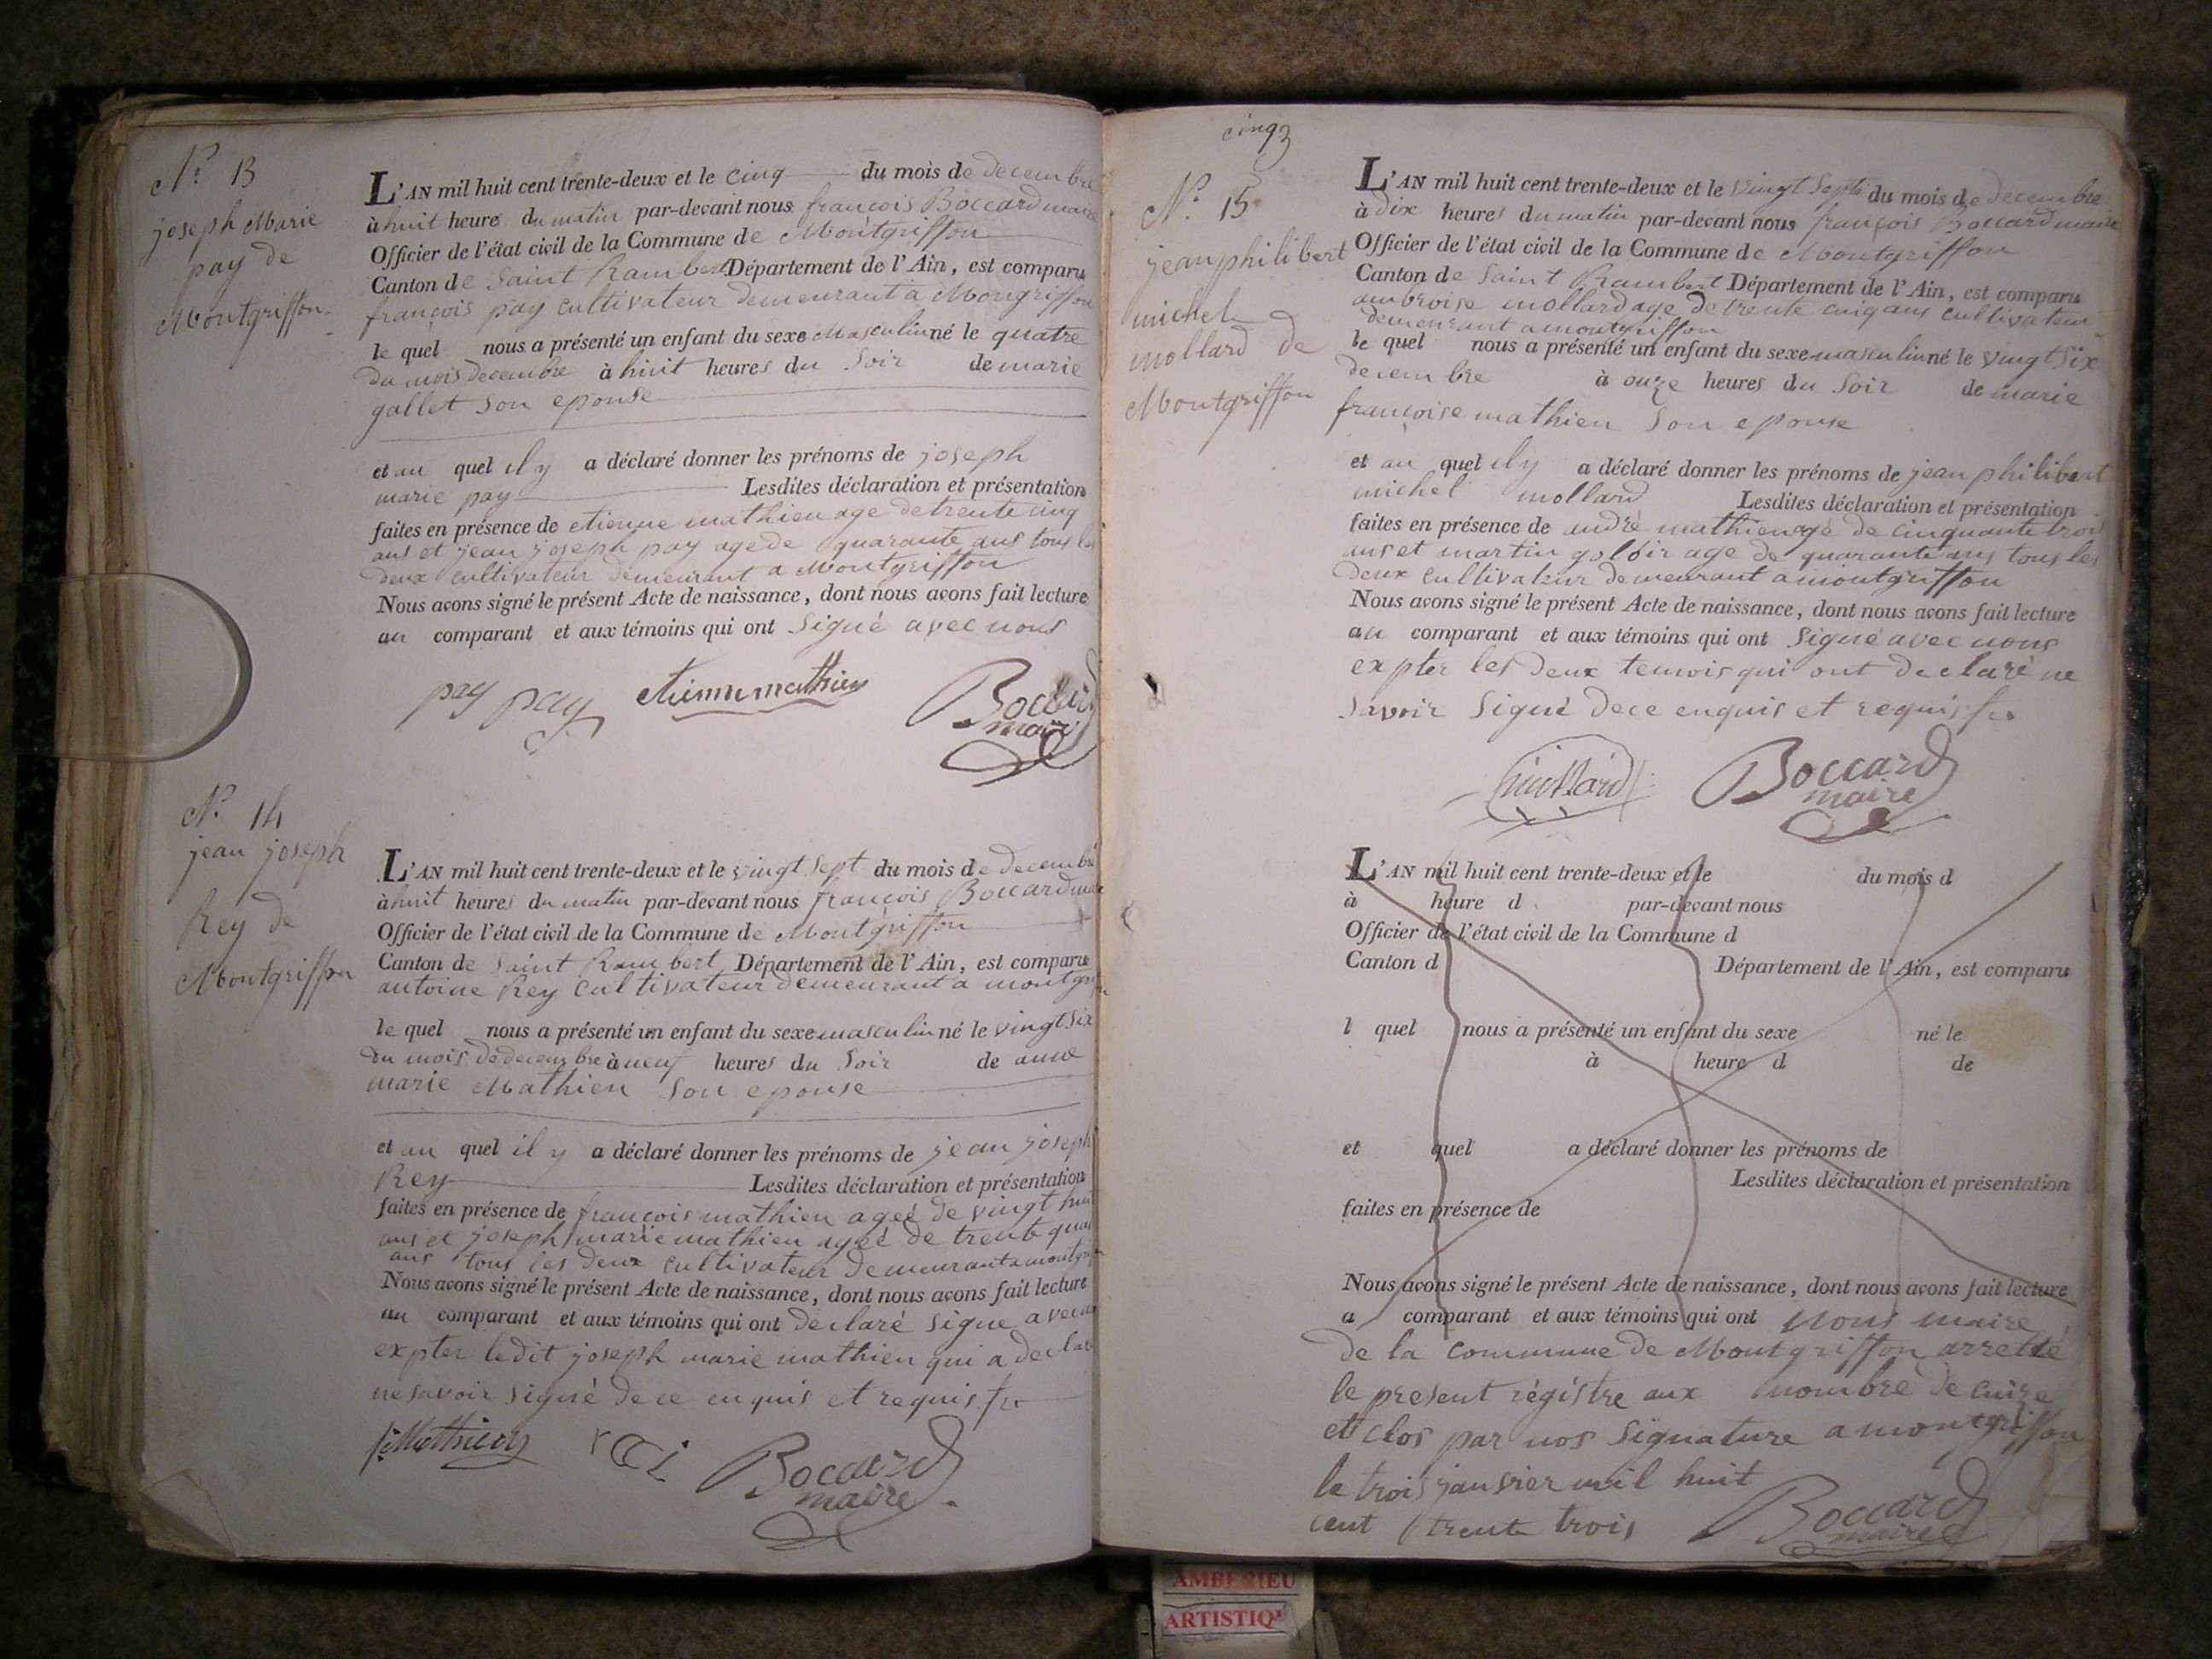 N.° 13
joseph Marie
pay de
Montgriffon
L'AN mil huit cent trente-deux et le cinq du mois de decembre
à huit heure du matin par-devant nous françois Boccard maire
Officier de l'état civil de la Commune de Montgriffon
Canton de Saint Rambert Département de l'Ain, est comparu
françois pay cultivateur demeurant a Mongriffon
le quel nous a présenté un enfant du sexe Masculin né le quatre
du mois decembre à huit heures du Soir de marie
gallet Son eponse
et au quel il y a déclaré donner les prénoms de joseph
marie pay Lesdites déclaration et présentation
faites en présence de etienne mathieu age de trente cinq
ans et jean joseph pay age de quarante ans tous les
deux cultivateur demeurant a Montgriffon
Nous avons signé le présent Acte de naissance, dont nous avons fait lecture
au comparant et aux témoins qui ont Signé avec nous
pay pay etienne mathieu Boccard
maire
N.° 14
jean joseph
Rey de
Montgriffon
L'AN mil huit cent trente-deux et le vingt Sept du mois de decembre
à huit heures du matin par-devant nous françois Boccard maire
Officier de l'état civil de la Commune de Montgriffon
Canton de Saint Rambert Département de l'Ain, est comparu
antoine Rey cultivateur demeurant a montgriffon
le quel nous a présenté un enfant du sexe masculin né le vingt Six
du mois de decembre à neuf heures du Soir de anne
marie Mathieu Son eponse
et au quel il y a déclaré donner les prénoms de jean joseph
Rey Lesdites déclaration et présentation
faites en présence de françois mathieu ageé de vingt huit
ans et joseph marie mathieu ageé de trente quat
ans tous les deux cultivateur demeurant a montgri
Nous avons signé le présent Acte de naissance, dont nous avons fait lecture
au comparant et aux témoins qui ont declaré Signe avec
expter ledit joseph marie mathieu qui a declaré
ne savoir signé de ce enquis et requis
f. Mathieu Boccard
maire
N.° 15
jean philibert
michel
mollard de
Montgriffon
L'AN mil huit cent trente-deux et le vingt Sept du mois de decembre
à dix heures du matin par-devant nous françois Boccard maire
Officier de l'état civil de la Commune de Montgriffon
Canton de Saint Rambert Département de l'Ain, est comparu
ambroise mollard age de trente cinq ans cultivateur
demeurant a montgriffon
le quel nous a présenté un enfant du sexe masculin né le vingt Six
decembre à onze heures du Soir de marie
françoise mathieu Son eponse
et au quel il y a déclaré donner les prénoms de jean philibert
michel mollard Lesdites déclaration et présentation
faites en présence de andré mathieu agé de cinquante trois
ans et martin age de quarante ans tous les
deux cultivateur demeurant a montgriffon
Nous avons signé le présent Acte de naissance, dont nous avons fait lecture
au comparant et aux témoins qui ont Signé avec nous
expter les deux temois qui ont declaré ne
Savoir Signé de ce enquis et requis
mollard Boccard
maire
L'AN mil huit cent trente-deux et le du mois d
à heure d par-devant nous
Officier de l'état civil de la Commune d
Canton d Département de l'Ain, est comparu
l quel nous a présenté un enfant du sexe né le
à heure d de
et quel a déclaré donner les prénoms de
Lesdites déclaration et présentation
faites en présence de
Nous avons signé le présent Acte de naissance, dont nous avons fait lecture
a comparant et aux témoins qui ont Nous maire
de la commune de Montgriffon arretté
le present régistre aux nombre de
et clos par nos Signature a montgriffon
le trois janvier mil huit
cent trente trois Boccard
maire
AMBERIEU
ARTISTIQ